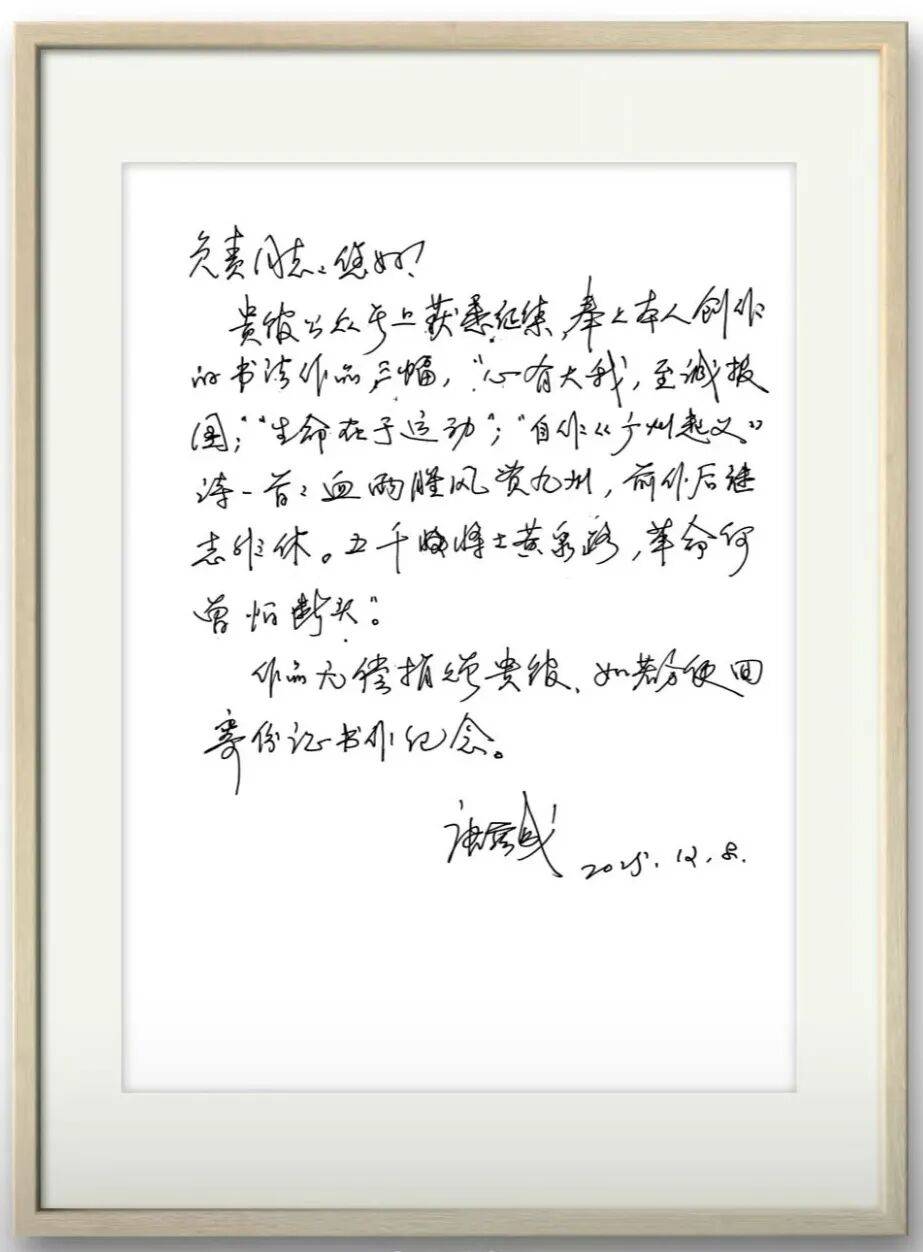 负责同志：您好！
贵馆公众号上获悉征集，奉上本人创作
的书法作品三幅，“心有大我，至诚报
国”；“生命在于运动”；“自作《广州起义》
诗一首：血雨腥风贯九州，前仆后继
志非休。五千将士黄泉路，革命何
曾怕断头”。
作品无偿捐赠贵馆，如若方便回
寄份证书作纪念。
2025.12.8.